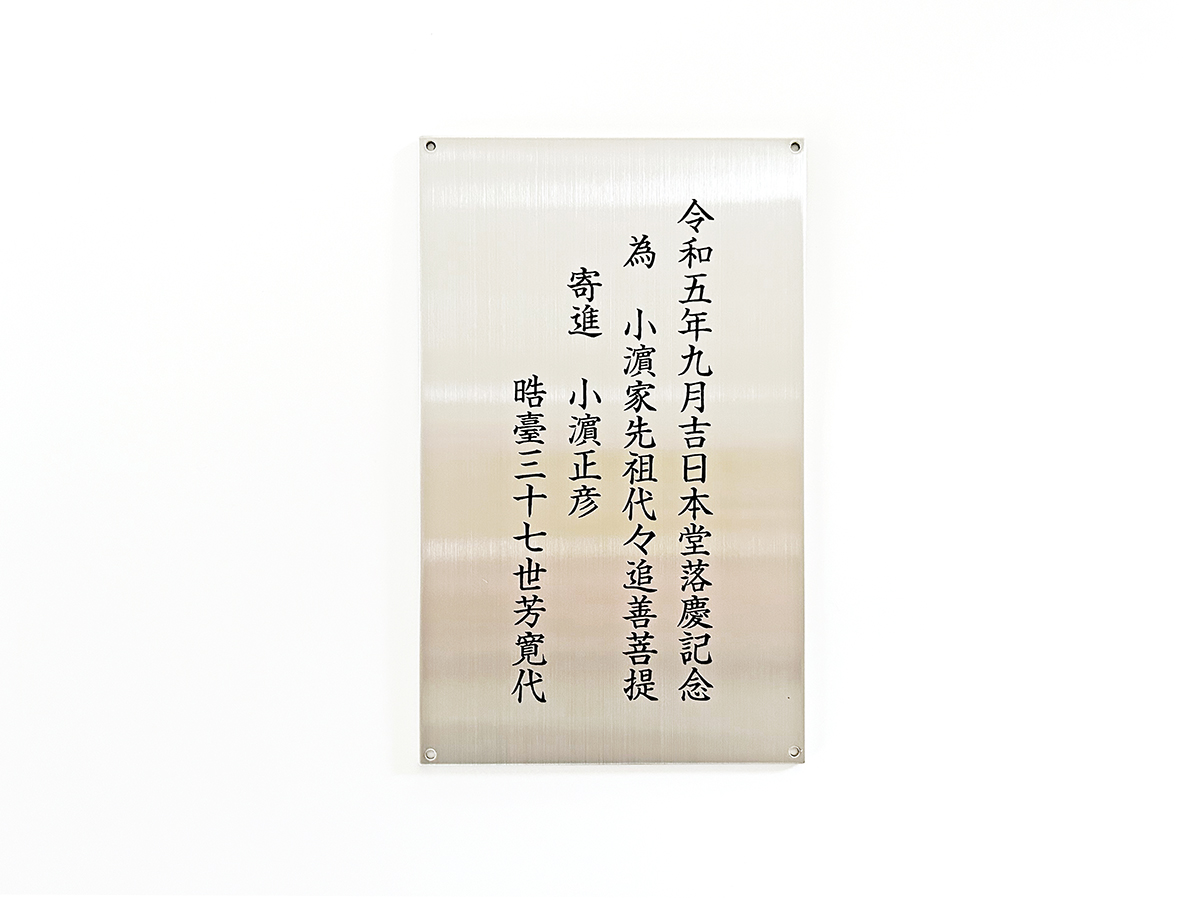 令和五年九月吉日本堂落慶記念
為　小濵家先祖代々追善菩提
寄進　小濵正彦
晧臺三十七世芳寛代